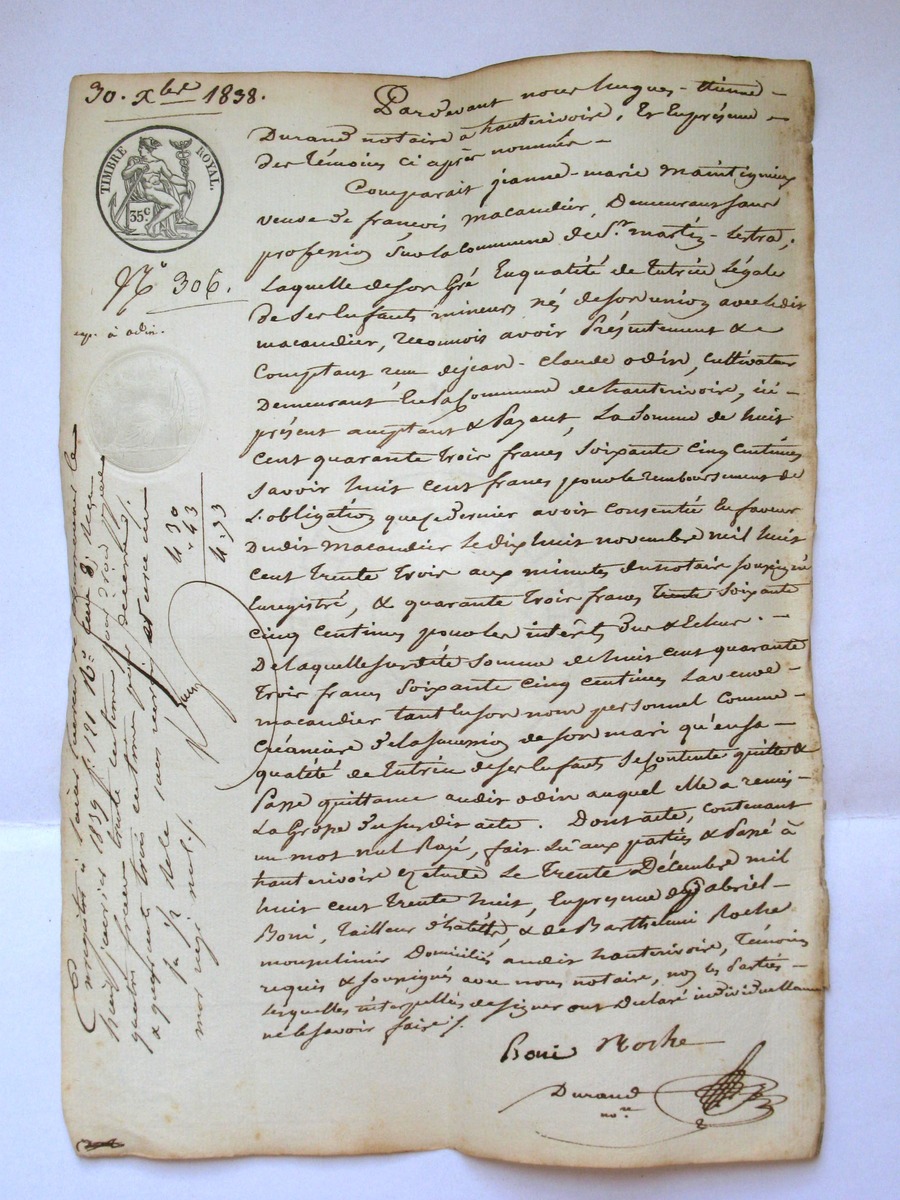 30. Xbre 1838.
TIMBRE ROYAL.
35c
No 306.
exp. à odin.
Pardevant nous hugues-étienne-
Durand notaire à hauterivoire, Et En présence-
des témoins ci après nommés-
Comparait jeanne-marie
veuve de françois macaudier, Demeurant sans
profession sur la Commune de St martin-lestra,
Laquelle de son Gré En qualité de tutrice Légale
de Ses Enfants mineurs nés de son union avec ledit
macaudier, reconnais avoir Présentement &
Comptant reçu de jean-Claude odin, cultivateur
Demeurant En la Commune de hauterivoire, ici-
présent acceptant & Payant, La Somme de huit
Cent quarante trois francs soixante cinq centimes
savoir huit cent francs pour le remboursement de
L'obligation que ce dernier avoit consentie En faveur
Dudit macaudier le dix huit novembre mil huit
cent trente trois aux minutes du notaire soussigné
Enregistré, & quarante trois francs trente soixante
cinq centimes pour les intérêts dus & Echus. -
De laquelle susdite somme de huit cent quarante
trois francs soixante cinq centimes La veuve-
macaudier tant En son nom personnel comme-
Créancière de la succession de son mari qu'en sa-
qualité de tutrice de ses Enfants se contente quitte &
Passe quittance audit odin auquel elle a remis
La Grosse du susdit acte. Dont acte, contenant
un mot nul Rayé, fait Lu aux parties & Passé à
hauterivoire En étude Le trente Décembre mil
huit cent trente huit, En présence de Gabriel-
Boni, tailleur d'habits, & de Barthelmi Roche
mousselinier Domiciliés audit hauterivoire, témoins
requis & soussignés avec nous notaire, non les Parties-
lesquelles interpellées de signer ont Déclaré individuellement
ne le savoir faire ./.
Boni Roche
Durand
nore
Enregistré à Saint
1839 f. 121 Ro Case 8. reçu
quatre francs trente centimes
& quarante trois centimes pour décime ./.
mot rayé nul ./.
4. 30
. 43
4. 73